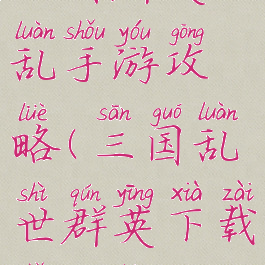 luàn shǒu yóu gōng
乱手游攻
lüè sān guó luàn
略(三国乱
shì qún yīng xià zài
世群英下载